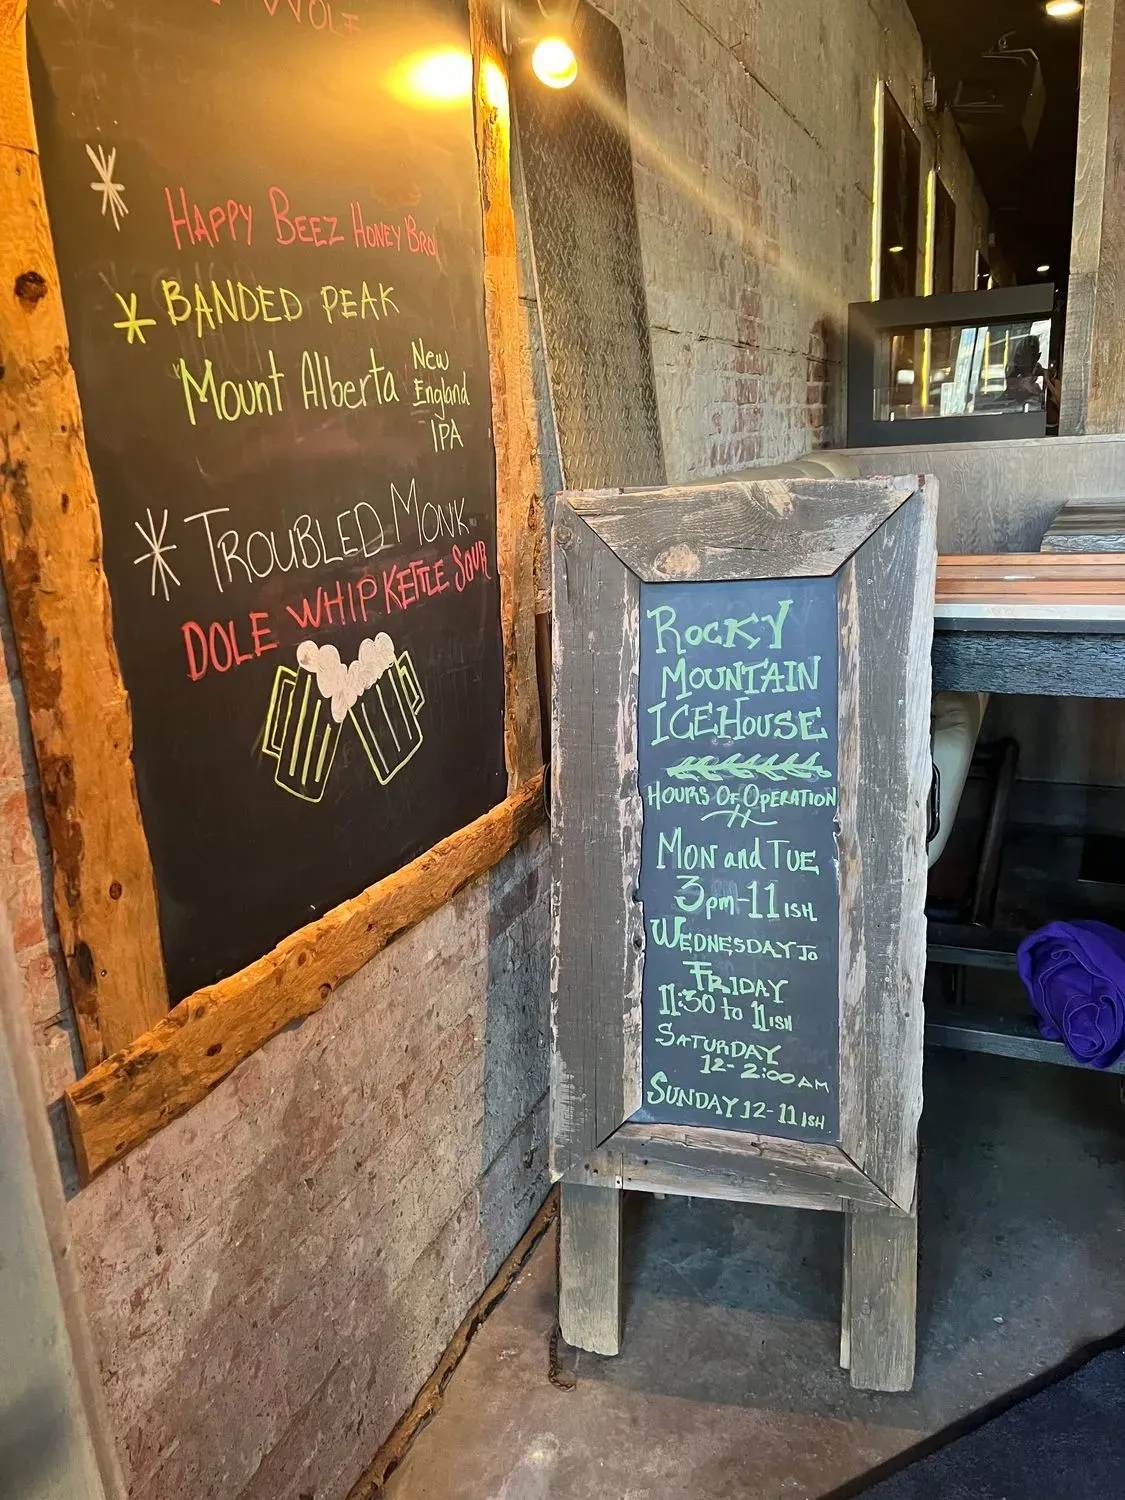 WOLF
HAPPY BEEZ HONEY BROW
BANDED PEAK
"Mount Alberta New
England
IPA
TROUBLED MONK
DOLE WHIP KETTLE SOUR
ROCKY
MOUNTAIN
ICEHOUSE
HOURS OF OPERATION
MON and TUE
3pm-11ISH
WEDNESDAY TO
FRIDAY
11:30 to 11ISH
SATURDAY
12-2:00AM
SUNDAY 12-11ISH